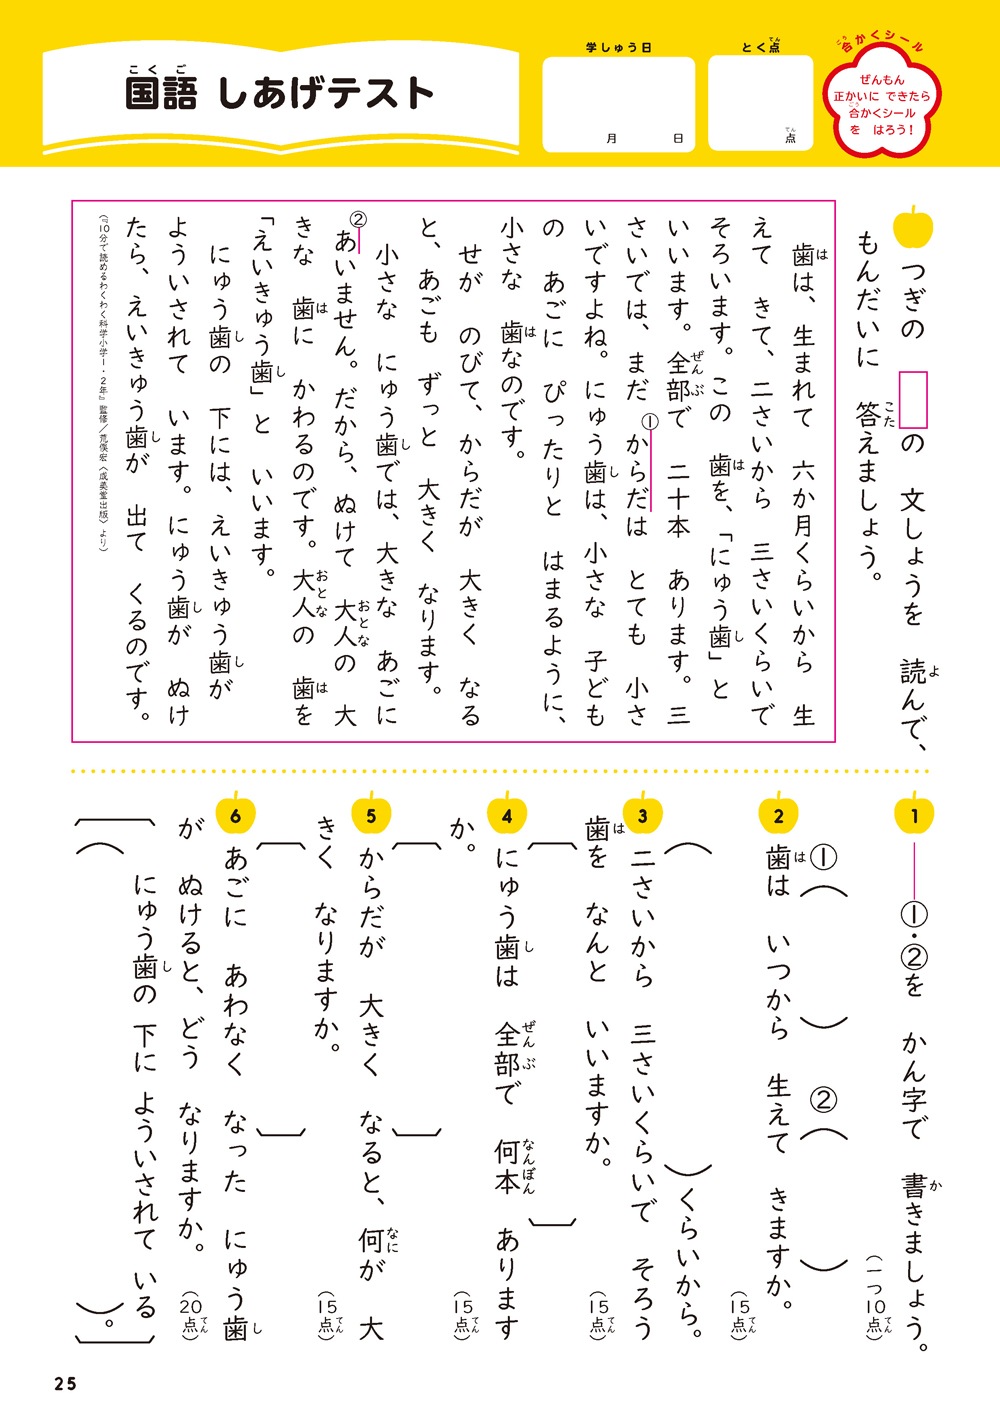 国語 しあげテスト
こくご
学しゅう日
月 日
とく点
てん
点
てん
合かくシール
ごう
ぜんもん
正かいに できたら
合かくシール
ごう
を はろう!
つぎの □の 文しょうを 読んで、
よ
もんだいに 答えましょう。
こた
歯は、生まれて 六か月くらいから 生
は
えて きて、二さいから 三さいくらいで
そろいます。この 歯を、「にゅう歯」と
は し
いいます。全部で 二十本 あります。三
ぜんぶ
さいでは、まだ ①からだは とても 小さ
いですよね。にゅう歯は、小さな 子ども
し
の あごに ぴったりと はまるように、
小さな 歯なのです。
は
せが のびて、からだが 大きく なる
と、あごも ずっと 大きく なります。
小さな にゅう歯では、大きな あごに
し
②あいません。だから、ぬけて 大人の 大
おとな
きな 歯に かわるのです。大人の 歯を
は おとな は
「えいきゅう歯」と いいます。
し
にゅう歯の 下には、えいきゅう歯が
し し
よういされて います。にゅう歯が ぬけ
し
たら、えいきゅう歯が 出て くるのです。
し
(『10分で読めるわくわく科学小学1・2年』監修/荒俣宏〈成美堂出版〉より)
1 ――①・②を かん字で 書きましょう。
か
(一つ10点)
てん
①( ) ②( )
2 歯は いつから 生えて きますか。
は
(15点)
てん
( )くらいから。
3 二さいから 三さいくらいで そろう
歯を なんと いいますか。
は
(15点)
てん
4 にゅう歯は 全部で 何本 あります
し ぜんぶ なんぼん
か。
(15点)
てん
5 からだが 大きく なると、何が 大
なに
きく なりますか。
(15点)
てん
6 あごに あわなく なった にゅう歯
し
が ぬけると、どう なりますか。
(20点)
てん
にゅう歯の 下に よういされて いる
し
( )。
25